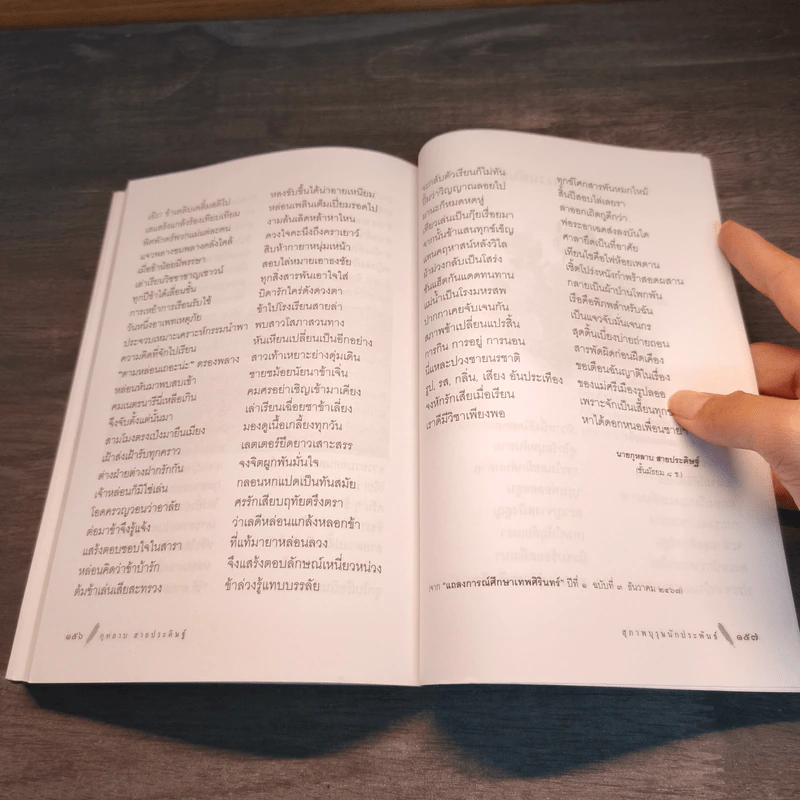 เอ๊ะ! ข้าเคลิบเคลิ้มสติไป หลงขับขี้นได้น่าอายเหนียม
เสแสร้งแกล้งร้องเทียบเทียม หล่อนเพลินเต็มเปี่ยมรอดไป
พิศพักตร์พวกแม่แต่ละคน งามล้นเลิศหล้าหาไหน
แจวพลางชมพลางคลั่งไคล้ ดวงใจคะนึงถึงคราเยาว์
เมื่อข้าน้อยมีพรรษา สิบห้ากายาหนุ่มเหน้า
เล่าเรียนวิชชาชาญเชาวน์ สอบไล่หมายเอาธงชัย
ทุกปีข้าได้เลื่อนชั้น ทุกสิ่งสารพันเอาใจใส่
การเหย้าการเรือนรับใช้ บิดารักใคร่ดังดวงตา
วันหนึ่งอาเพทเหตุภัย ข้าไปโรงเรียนสายล่า
ประจวบเหมาะเคราะห์กรรมนำพา พบสาวโสภาสวนทาง
ความคิดที่จักไปเรียน หันเหียนเปลี่ยนเป็นอีกอย่าง
"ตามหล่อนเถอะน่ะ" ตรองพลาง สาวเท้าเหยาะย่างดุ่มเดิน
หล่อนหันมาพบสบเข้า ชายชม้อยนัยนาข้าเจิ่น
คมเนตรนารีนี่เหลือเกิน คมศรอย่าเชิญเข้ามาเคียง
จึงจับตั้งแต่นั้นมา เล่าเรียนเฉื่อยชาข้าเลี่ยง
สามโมงตรงเป๋งมายืนเมียง มองดูเนื้อเกลี้ยงทุกวัน
เฝ้าส่งเฝ้ารับทุกคราว เลตเตอร์ยืดยาวเสาะสรร
ต่างฝ่ายต่างฝากรักกัน จงจิตผูกพันมั่นใจ
เจ้าหล่อนก็มิใช่เล่น กลอนหกแปดเป็นทันสมัย
โอดครวญวอนว่าอาลัย ศรรักเสียบฤทัยตรึงตรา
ต่อมาข้าจึงรู้แจ้ง ว่าเลดีหล่อนแกล้งหลอกข้า
แสร้งตอบชอบใจในสารา ที่แท้มายาหล่อนลวง
หล่อนคิดว่าข้าบ้ารัก จึงแสร้งตอบลักษณ์เหนี่ยวหน่วง
ต้มข้าเล่นเสียสะทรวง ข้าล่วงรู้แทบบรรลัย
๑๕๖ กุหลาบ สายประดิษฐ์
จะกลับตัวเรียนก็ไม่ทัน ทุกข์โศกสารพันหมกไหม้
ว่าวิญญาณลอยไป สิ้นปีสอบไล่เลยรา
ก็หมดหดหู่ ลาออกเถิดกูดีกว่า
เที่ยวเล่นเป็นกุ๊ยเรื่อยมา พ่อระอาเฉดส่งลงบันได
จากนั้นข้าแสนทุกข์เข็ญ ศาลายึดเป็นที่อาศัย
แทนคฤหาสน์หลังวิไล เทียนไขคือไฟห้อยเพดาน
ผ้าม่วงกลับเป็นโสร่ง เชิ้ตโปร่งหนังกำพร้าสอดผสาน
ส้นแฮ๊ดกันแดดทนทาน กลายเป็นผ้าบ้านโพกพัน
แม่น้ำเป็นโรงมหรสพ เรือคือพิภพสำหรับฉัน
ปากกาเคยจับเจนกัน เป็นแจวจับมั่นเจนกร
สภาพข้าเปลี่ยนแปรสิ้น สุดดิ้นเบี่ยงบ่ายถ่ายถอน
การกิน การอยู่ การนอน สารพัดผิดก่อนฝืดเคือง
นี่แหละปวงชายนรชาติ ขอเตือนอันญาติในเรื่อง
รูป, รส, กลิ่น, เสียง อันประเทือง ของแม่ศรีเมืองรูปลออ
จงหักรักเสียเมื่อเรียน เพราะจักเป็นเสี้ยน
เราดีมีวิชาเพียงพอ หาได้ดอกหนอเพื่อนชาย
นายกุหลาบ สายประดิษฐ์
(ชั้นมัธยม ๘ ข.)
(จาก "แถลงการณ์ศึกษาเทพศิรินทร์" ปีที่ ๑ ฉบับที่ ๓ ธันวาคม ๒๔๖๗)
สุภาพบุรุษนักประพันธ์ ๑๕๗